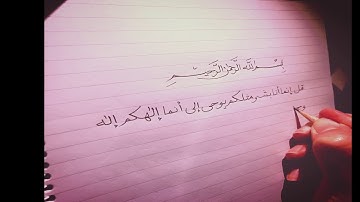 بسم الله الرحمن الرحيم
قل إنما أنا بشر مثلكم يوحى إلي أنما إلهكم إله